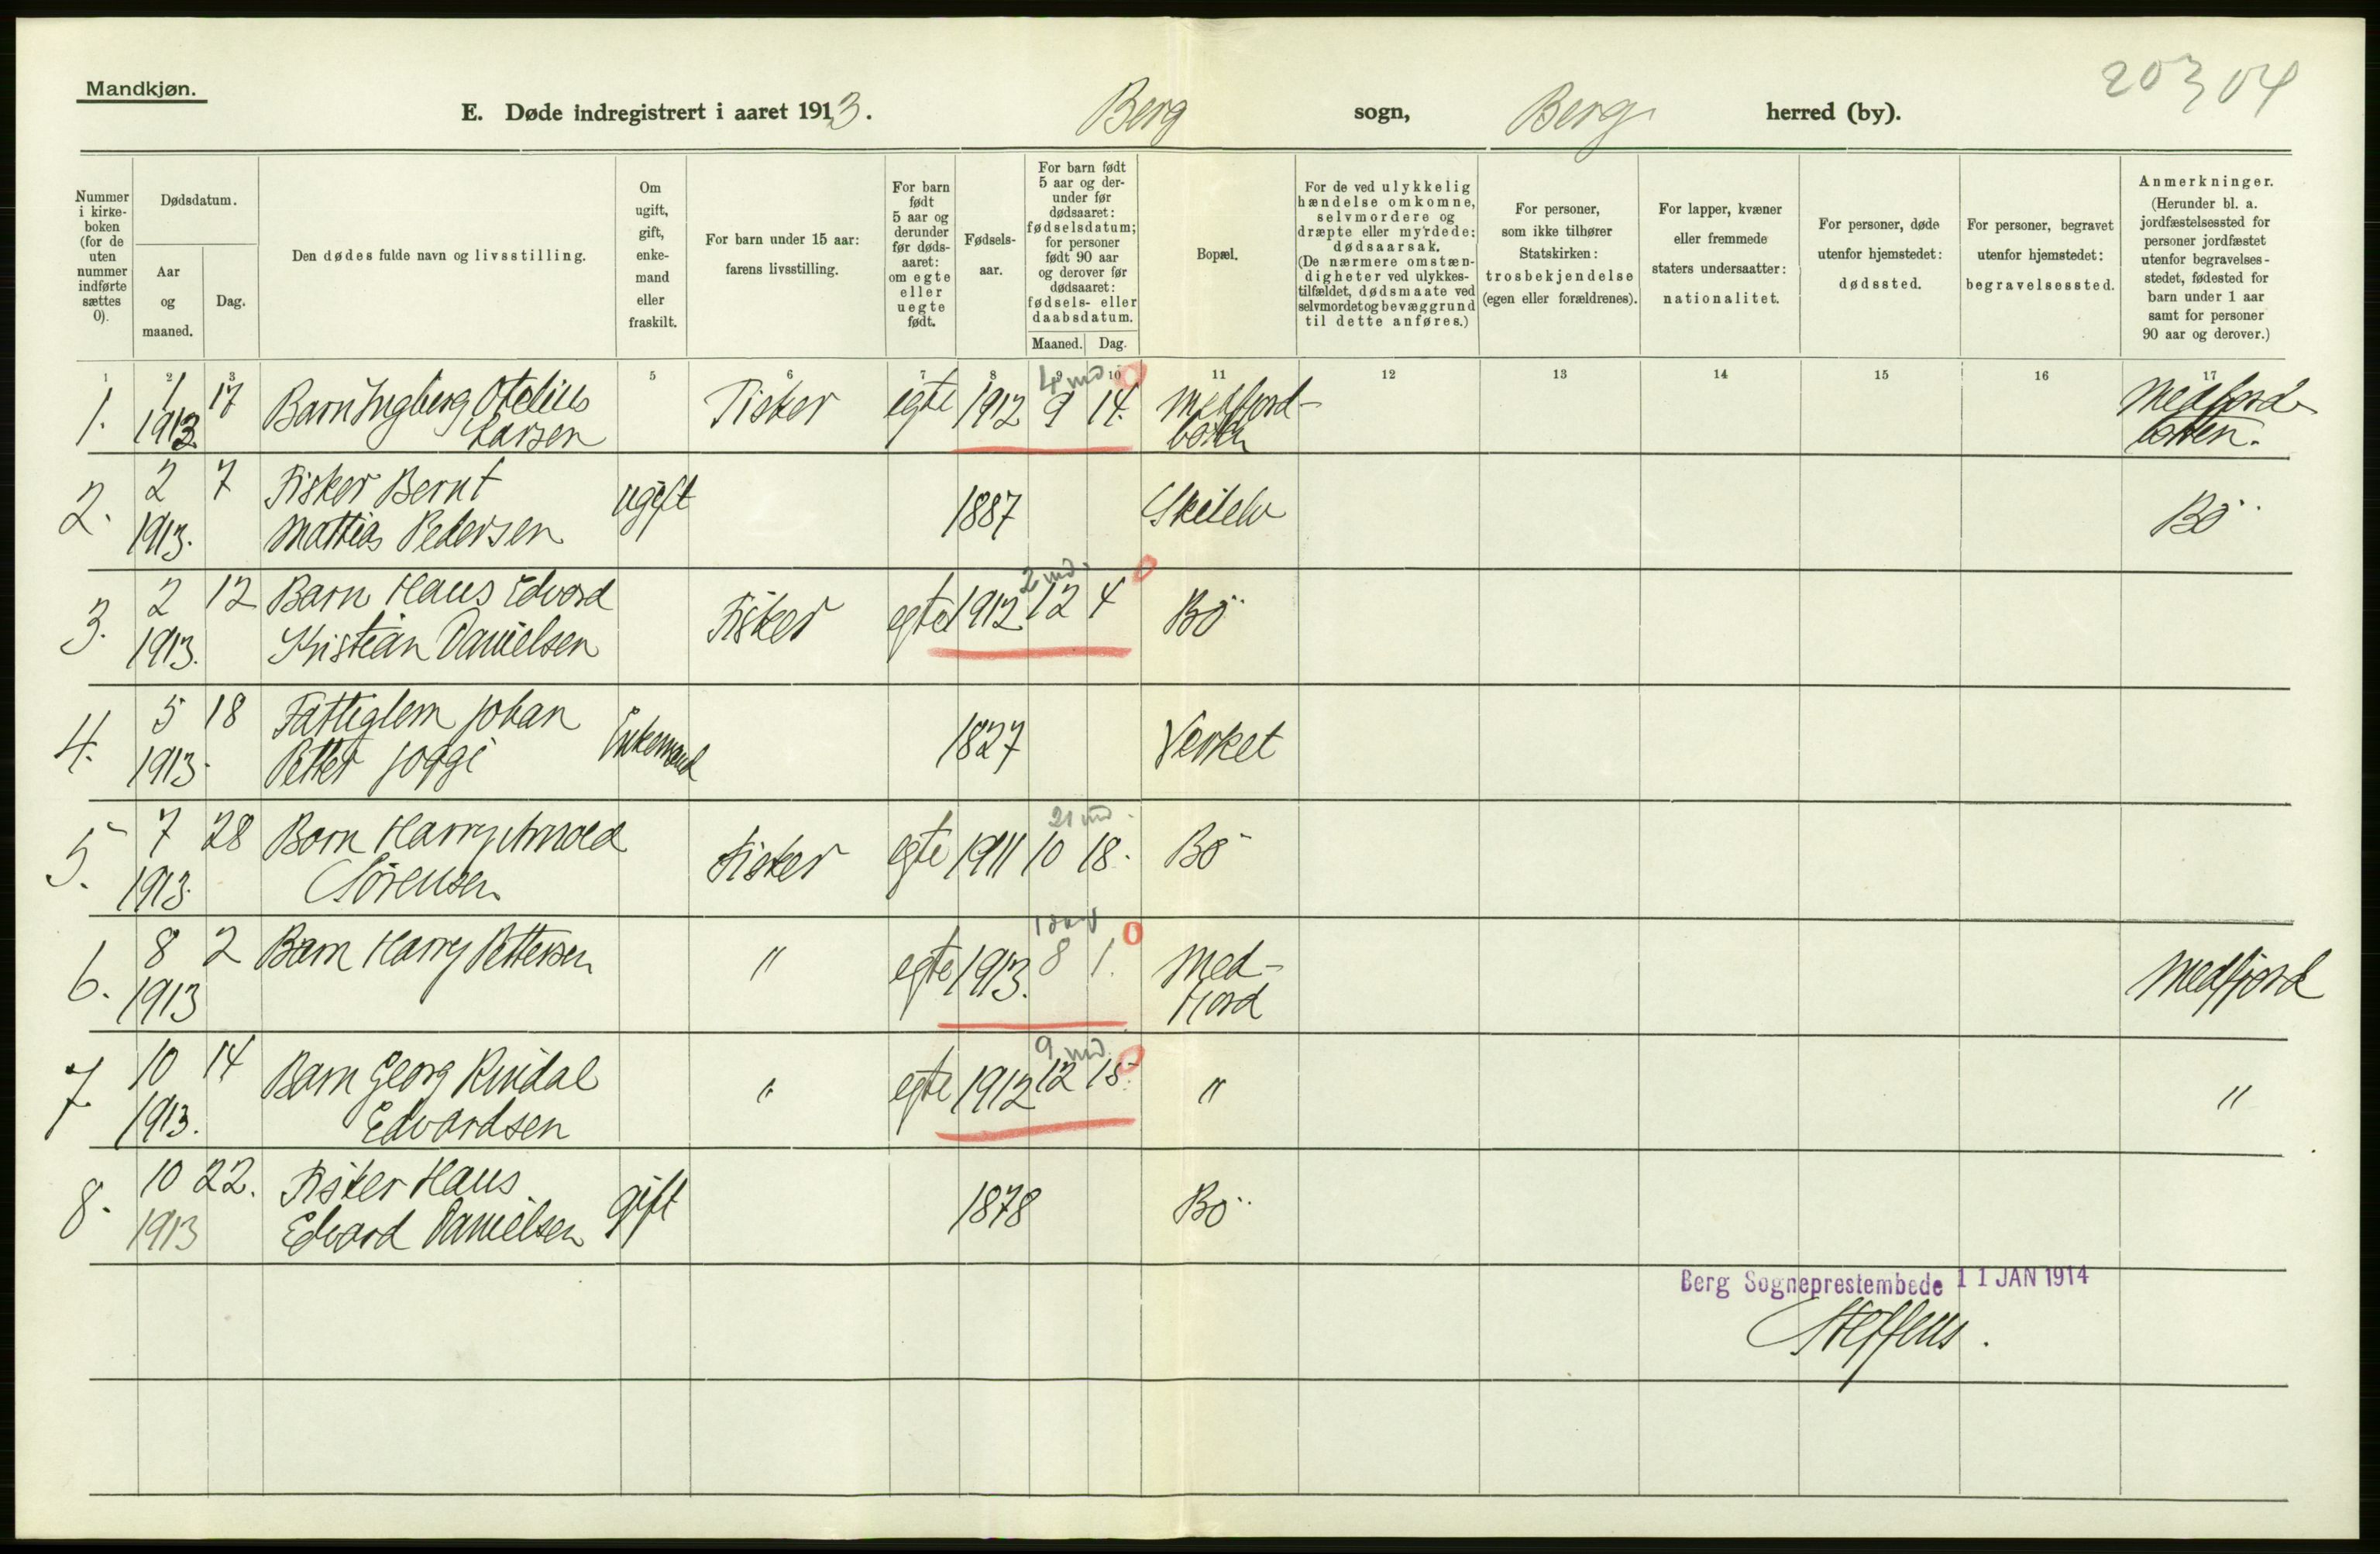 20304
Mandkjøn.
E. Døde indregistrert i aaret 1913. Berg sogn, Berg herred (by).
Nummer i kirke- boken (for de uten nummer indførte sættes 0).
Dødsdatum.
Aar og maaned.
Dag.
Den dødes fulde navn og livsstilling.
Om ugift, gift, enke- mand eller fraskilt.
For barn under 15 aar: farens livsstilling.
For barn født 5 aar og derunder før døds- aaret: om egte eller uegte født.
Fødsels- aar.
For barn født 5 aar og der- under før dødsaaret: fødselsdatum; for personer født 90 aar og derover før dødsaaret: fødsels- eller daabsdatum.
Maaned. Dag.
Bopæl.
For de ved ulykkelig hændelse omkomne, selvmordere og dræpte eller myrdede: dødsaarsak. (De nærmere omstæn- digheter ved ulykkes- tilfældet, dødsmaate ved selvmordet og bevæggrund til dette anføres.)
For personer, som ikke tilhører Statskirken: trosbekjendelse (egen eller forældrenes).
For lapper, kvæner eller fremmede staters undersaatter: nationalitet.
For personer, døde utenfor hjemstedet: dødssted.
For personer, begravet utenfor hjemstedet: begravelsessted.
Anmerkninger. (Herunder bl. a. jordfæstelsessted for personer jordfæstet utenfor begravelses- stedet, fødested for barn under 1 aar samt for personer 90 aar og derover.)
1 2 3 5 6 7 8 9 10 11 12 13 14 15 16 17
4 md 0
1. 1 17 Barn Ingberg Otelius Fisker egte 1912 9 14. Medfjord- Medfjord-
1913 Larsen botn botten.
2. 2 7 Fisker Bernt ugift 1887 Skilelv Bö
1913. Mattias Pedersen
2 md. 0
3. 2 12 Barn Hans Edvard Fisker egte 1912 12 4 Bö
1913. Kristian Danielsen
4. 5 18 Fattiglem Johan Enkemand 1827 Verket
1913. Petter Joggi
21 md.
5. 7 28 Barn Harry Arnold Fisker egte 1911 10 18. Bö
1913. Sörensen
1 0
6. 8 2 Barn Harry Pettersen " egte 1913. 8 1. Med- Medfjord
1913 fjord
9 md. 0
7. 10 14 Barn Georg Rindal " egte 1912 12 15. " "
1913. Edvardsen
8. 10 22. Fisker Hans gift 1878 Bö
1913 Edvard Danielsen
Berg Sogneprestembede 11 JAN 1914
Steffens.